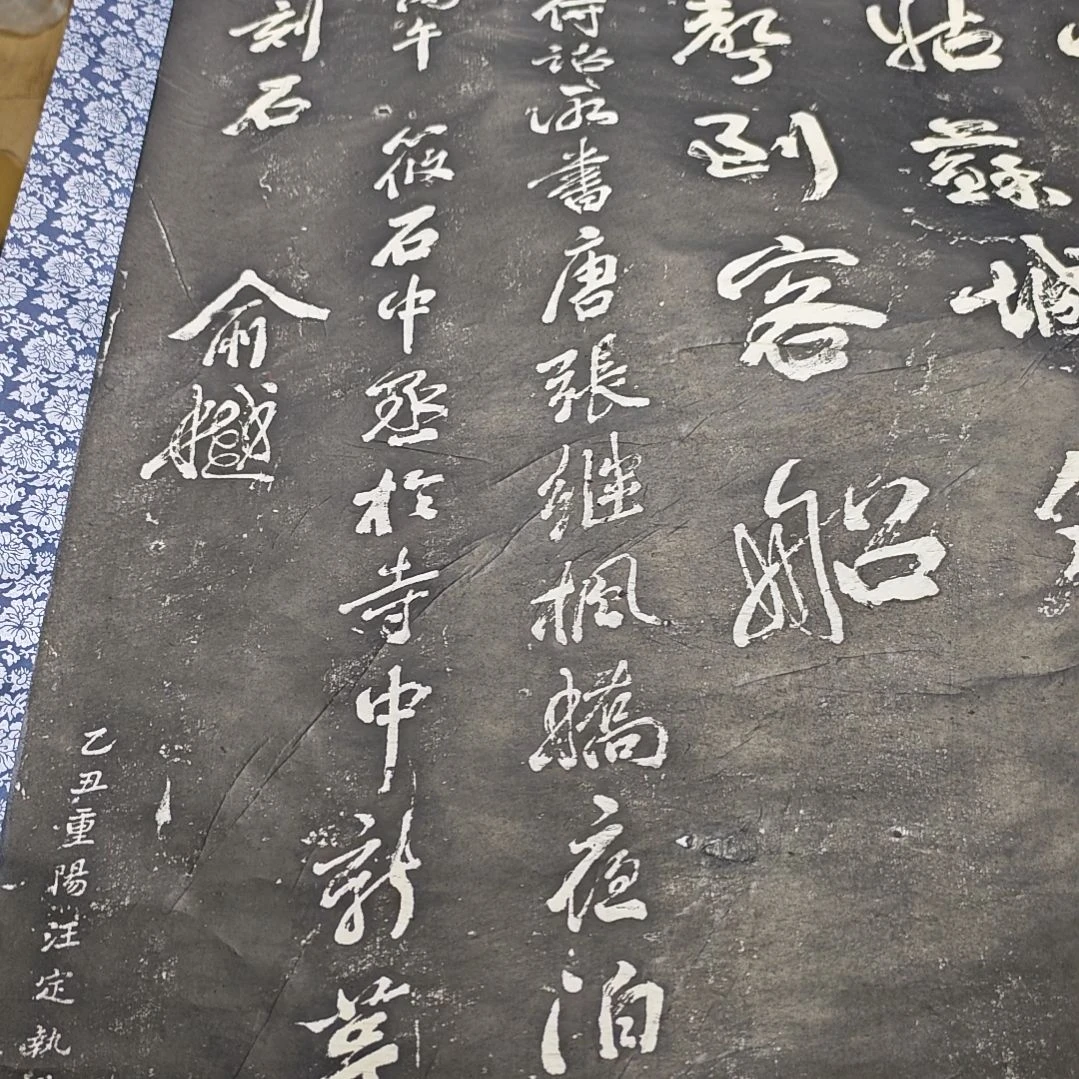 姑蘇城
聲到客船
待詔所書唐張继楓橋夜泊
午筱石中丞於寺中新葺
刻石 俞樾
乙丑重陽汪定執